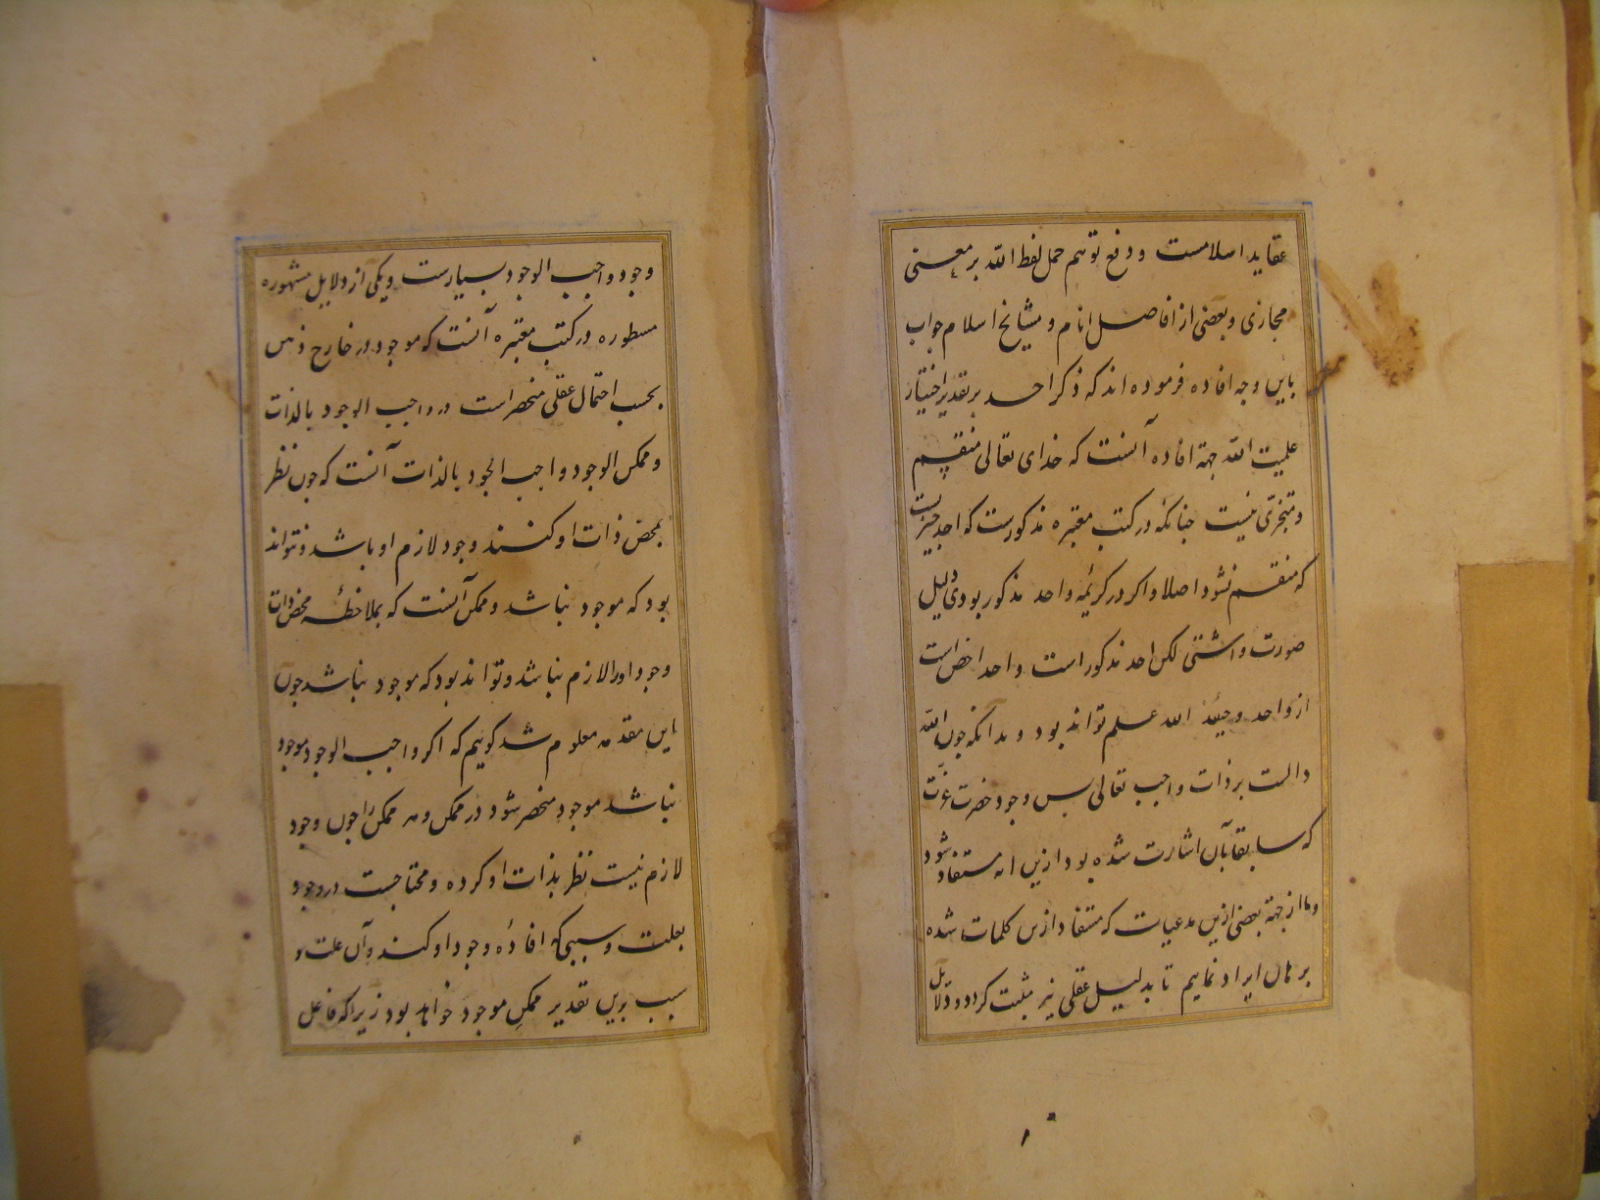 عقاید اسلامست و دفع توهم حمل لفظ الله بر معنی
مجازی و بعضی از افاضل انام و مشایخ اسلام جواب
باین وجه افاده فرموده اند که ذکر احد بر تقدیر اختیار
علمیت الله جهة افاده آنست که خدای تعالی منقسم
و متجزی نیست چنانکه در کتب معتبره مذکورست که احد چیزیست
که منقسم نشود اصلا و اکر در کریمه واحد مذکور بودی دلیل
صورت داشتی لکن احد مذکور است و احد اخص است
از واحد و حینئذ الله علم تواند بود و بدانکه چون الله
دالست بر ذات واجب تعالی پس وجود حضرت عزت
که سابقا بآن اشارت شده بود ازین اسم مستفاد شود
و ما از جهة بعضی ازین مدعیات که مستفاد ازین کلمات شده
برهان ایراد نماییم تا بدلیل عقلی نیز مثبت کردد و دلایل
وجود واجب الوجود بسیارست و یکی از دلایل مشهوره
مسطوره در کتب معتبره آنست که موجود در خارج ذهن
بحسب احتمال عقلی منحصر است در واجب الوجود بالذات
و ممکن الوجود و واجب الوجود بالذات آنست که چون نظر
بمحض ذات او کنند وجود لازم او باشد و نتواند
بود که موجود نباشد و ممکن آنست که بملاحظه محض ذات
وجود او را لازم نباشد و تواند بود که موجود نباشد چون
این مقدمه معلوم شد کوییم که اکر واجب الوجود موجود
نباشد موجود منحصر شود در ممکن و هر ممکن را چون وجود
لازم نیست نظر بذات او کرده و محتاجست در وجود
بعلت و سببی که افاده وجود او کند و آن علت و
سبب برین تقدیر ممکن موجود خواهد بود زیرا که فاعل